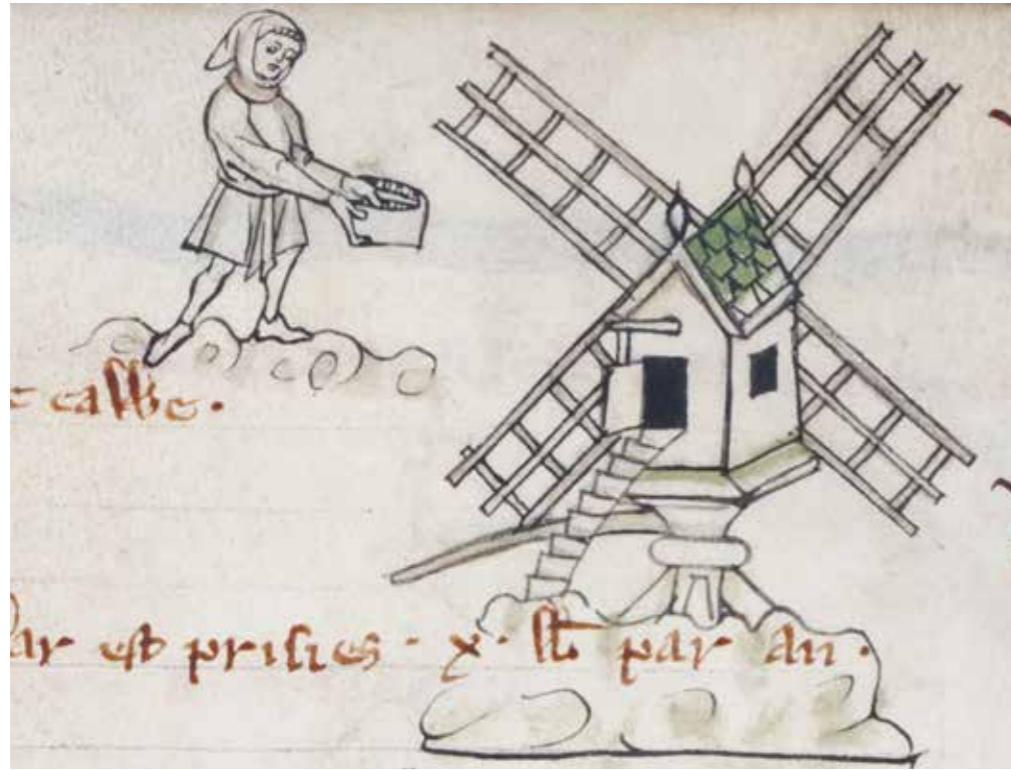 e calwe ·
ar est prisies · x · lb par an ·